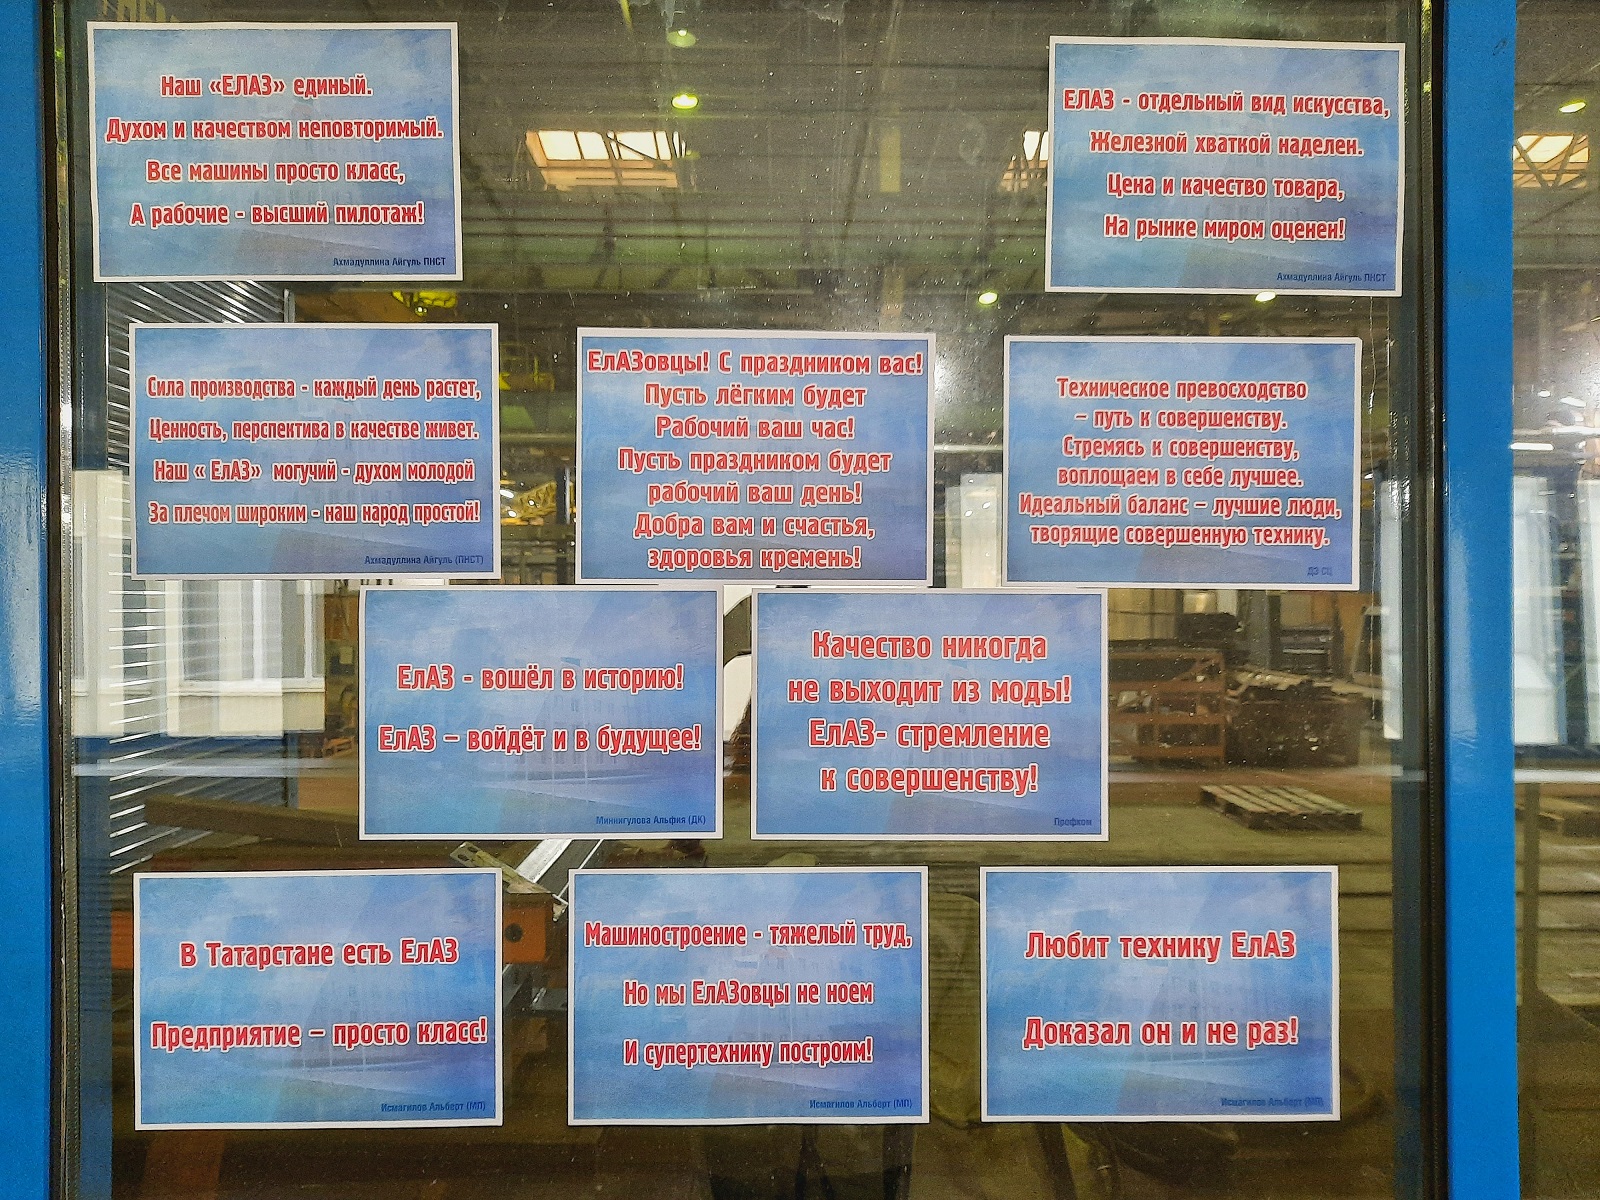 Наш «ЕЛАЗ» единый.
Духом и качеством неповторимый.
Все машины просто класс,
А рабочие - высший пилотаж!
Ахмадуллина Айгуль ПНСТ
ЕЛАЗ - отдельный вид искусства,
Железной хваткой наделен.
Цена и качество товара,
На рынке миром оценен!
Ахмадуллина Айгуль ПНСТ
Сила производства - каждый день растет,
Ценность, перспектива в качестве живет.
Наш « ЕлАЗ» могучий - духом молодой
За плечом широким - наш народ простой!
Ахмадуллина Айгуль (ПНСТ)
ЕлАЗовцы! С праздником вас!
Пусть лёгким будет
Рабочий ваш час!
Пусть праздником будет
рабочий ваш день!
Добра вам и счастья,
здоровья кремень!
Техническое превосходство
– путь к совершенству.
Стремясь к совершенству,
воплощаем в себе лучшее.
Идеальный баланс – лучшие люди,
творящие совершенную технику.
ДЭ СЦ
ЕлАЗ - вошёл в историю!
ЕлАЗ – войдёт и в будущее!
Миннигулова Альфия (ДК)
Качество никогда
не выходит из моды!
ЕлАЗ- стремление
к совершенству!
Профком
В Татарстане есть ЕлАЗ
Предприятие – просто класс!
Исмагилов Альберт (МП)
Машиностроение - тяжелый труд,
Но мы ЕлАЗовцы не ноем
И супертехнику построим!
Исмагилов Альберт (МП)
Любит технику ЕлАЗ
Доказал он и не раз!
Исмагилов Альберт (МП)